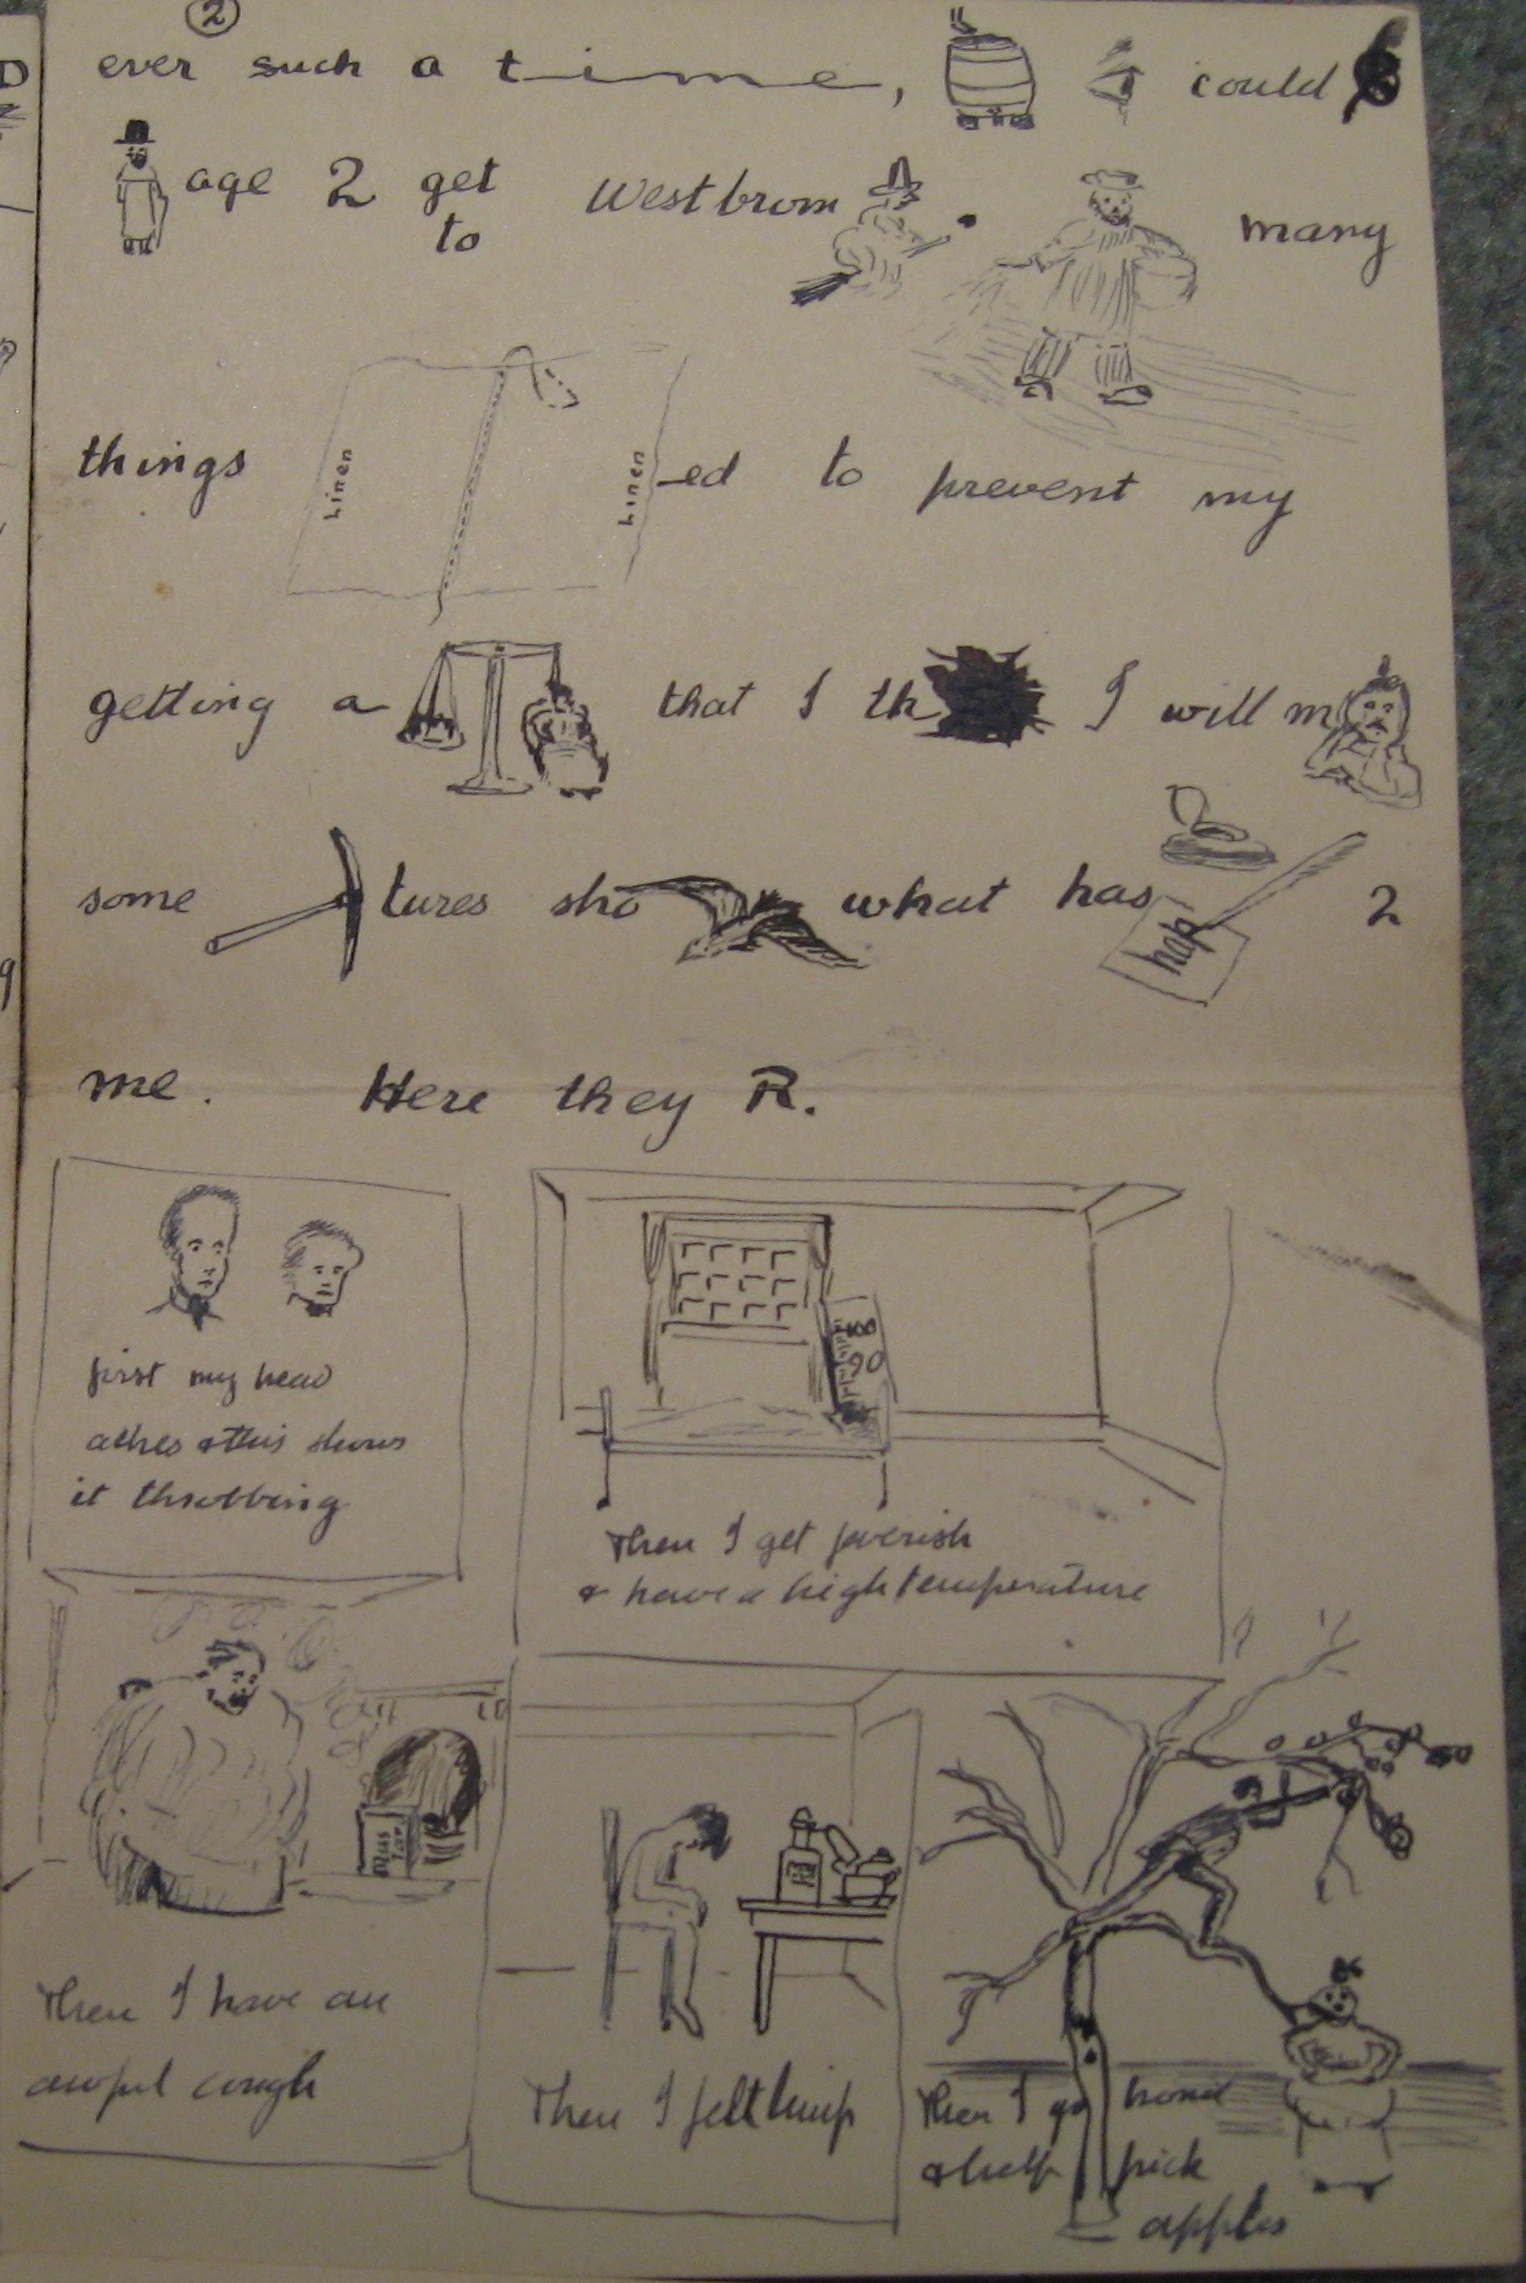 2
ever such a time, could
age 2 get to Westbrom
many
things Linen Linen ed to prevent my
getting a that I th I will m
some tures sho what has hap 2
me. Here they R.
first my head
aches & this shows
it throbbing
100
90
Then I get feverish
& have a high temperature
Mus
tard
Then I have an
awful cough
Then I felt limp
Then I go home
& help pick
apples